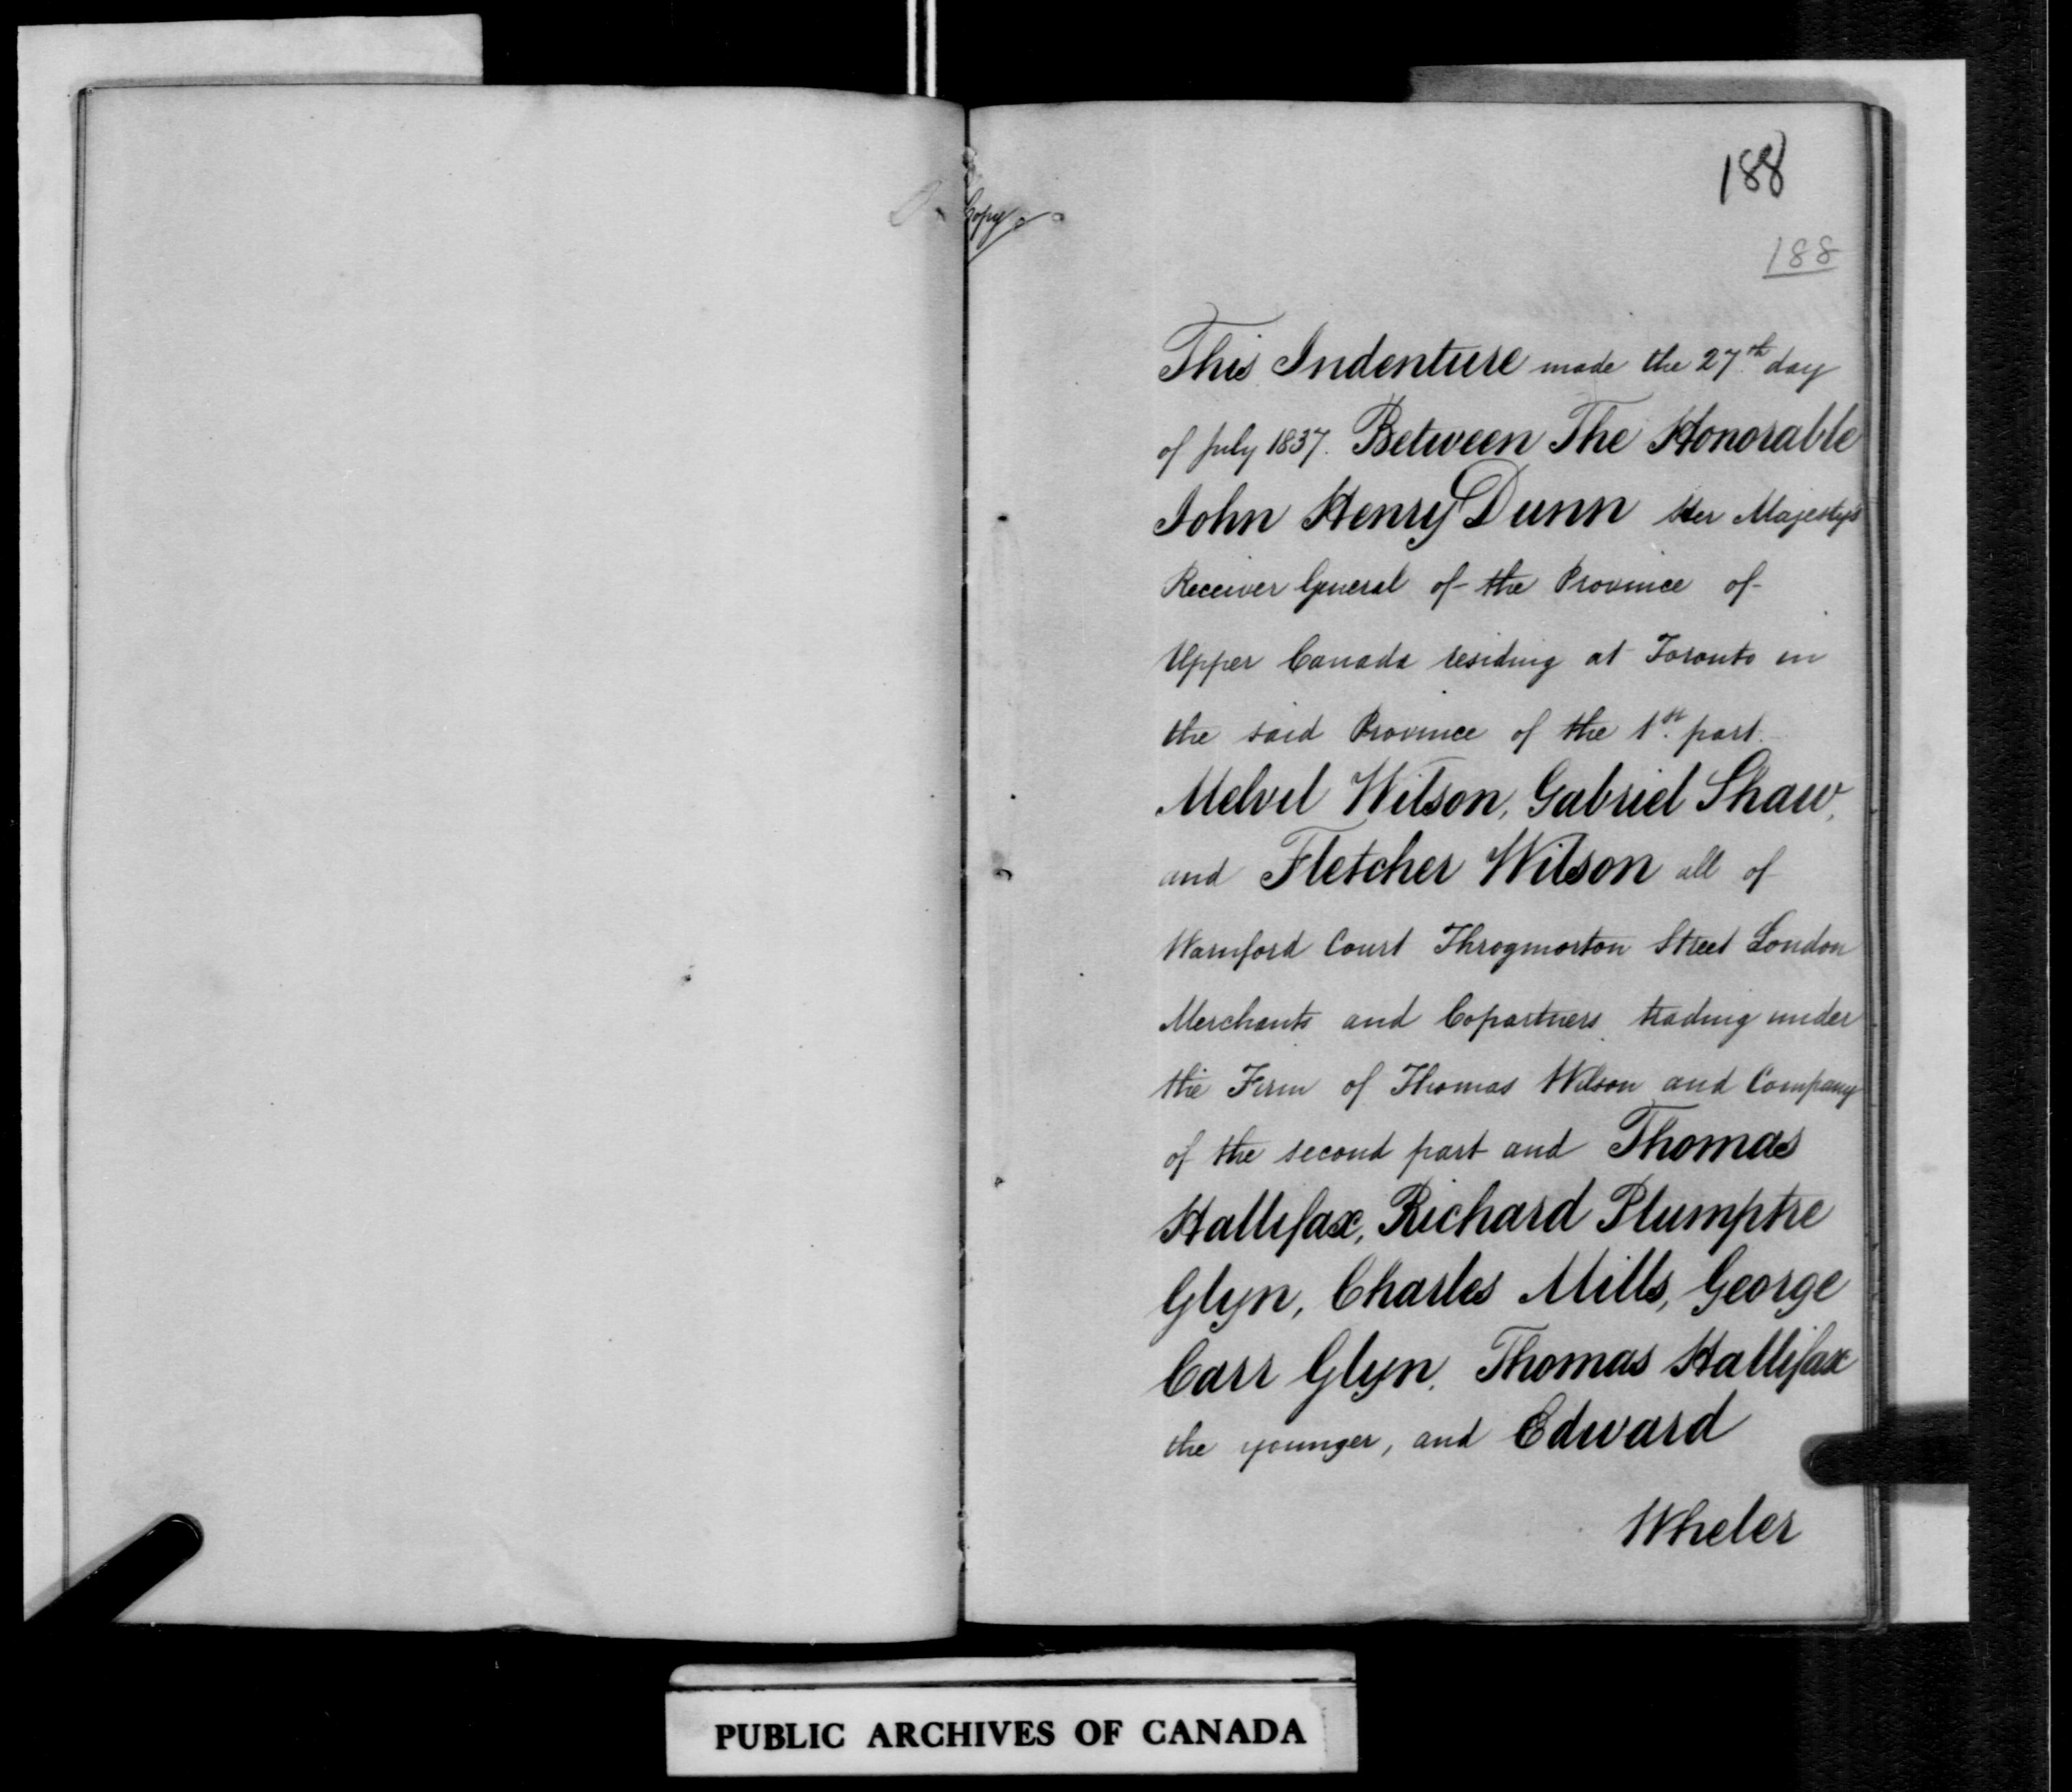 Copy
188
188
This Indenture made the 27th day
of July 1837. Between The Honorable
John Henry Dunn Her Majesty's
Receiver General of the Province of
Upper Canada residing at Toronto in
the said Province of the 1st part.
Melvil Wilson, Gabriel Shaw,
and Fletcher Wilson all of
Warnford Court Throgmorton Street London
Merchants and Copartners trading under
the Firm of Thomas Wilson and Company
of the second part and Thomas
Hallifax, Richard Plumptre
Glyn, Charles Mills, George
Carr Glyn, Thomas Hallifax
the younger, and Edward
Wheler
PUBLIC ARCHIVES OF CANADA